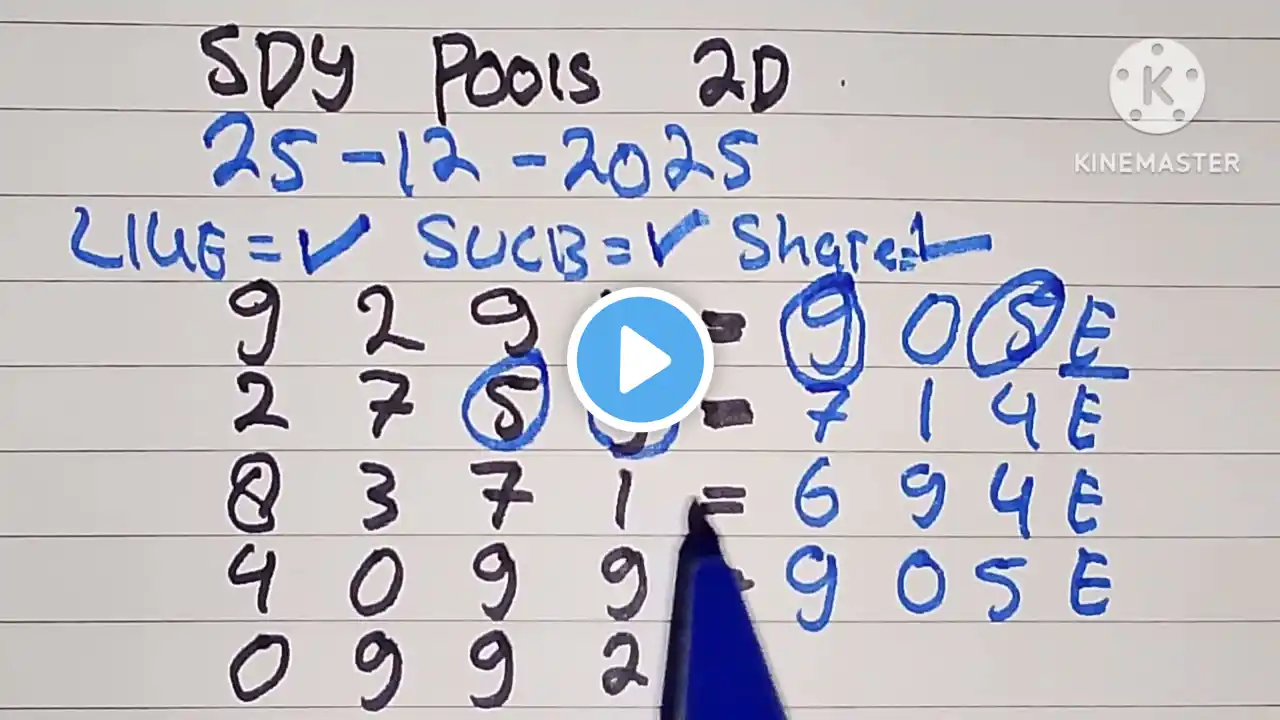 SDY Pools 2D
25-12-2025
LIKE = ✓ SUCB = ✓ Share = ✓
9 2 9 = 9 0 5 E
2 7 5 = 7 1 4 E
8 3 7 1 = 6 9 4 E
4 0 9 9 = 9 0 5 E
0 9 9 2
K
KINEMASTER